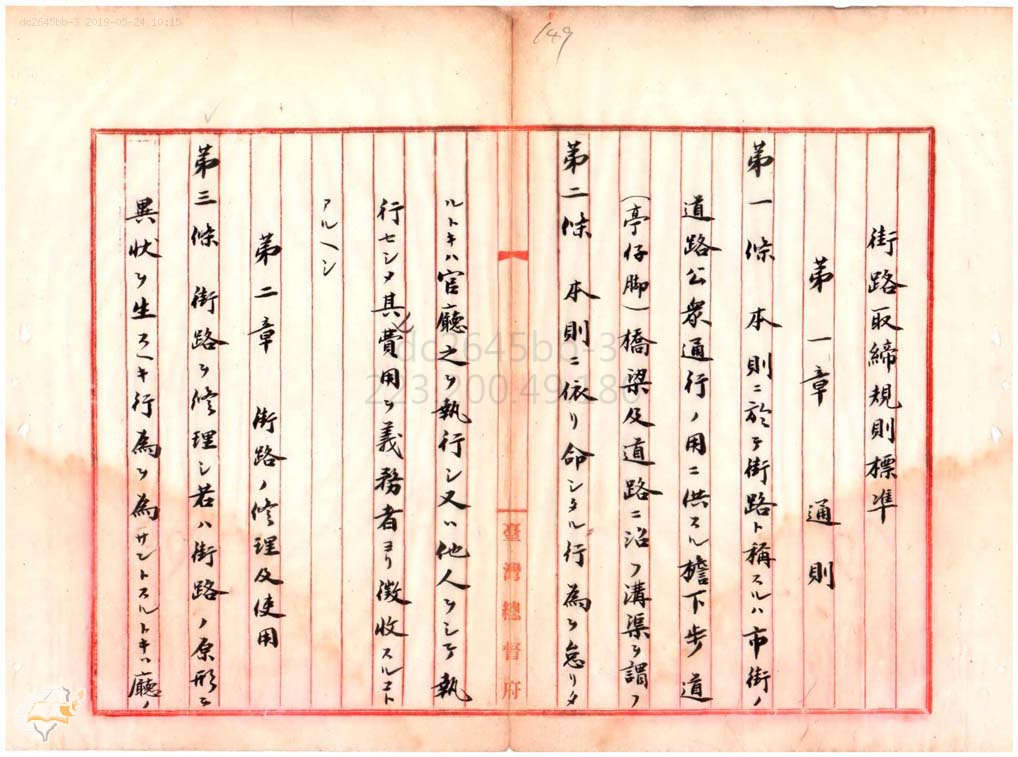 dc2645bb-3 2019-05-24 10:15
149
街路取締規則標準
第一章　通則
第一條　本則ニ於テ街路ト稱スルハ市街ノ
道路公衆通行ノ用ニ供スル檐下步道
(亭仔脚)橋梁及道路ニ沿フ溝渠ヲ謂フ
第二條　本則ニ依リ命シタル行為ヲ怠リタ
ルトキハ官廳之ヲ執行シ又ハ他人ヲシテ執
行セシメ其費用ヲ義務者ヨリ徴收スルコト
アルヘシ
第二章　街路ノ修理及使用
第三條　街路ヲ修理シ若ハ街路ノ原形ニ
異狀ヲ生スヘキ行為ヲ為サントスルトキハ廳ノ
臺灣總督府
dc2645bb-3
223.200.49.180